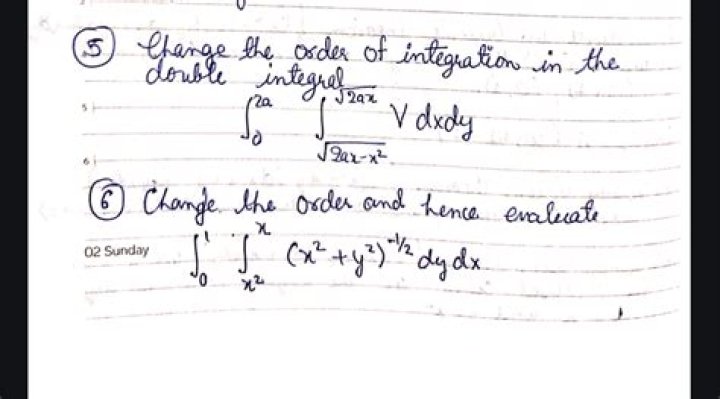 ⑤ Change the order of integration in the
double integral
∫₀^{2a} ∫_{√2ax-x²}^{√2ax} V dxdy
⑥ Change the order and hence evaluate
02 Sunday ∫₀^1 ∫_{x²}^{x} (x²+y²)^{-1/2} dy dx